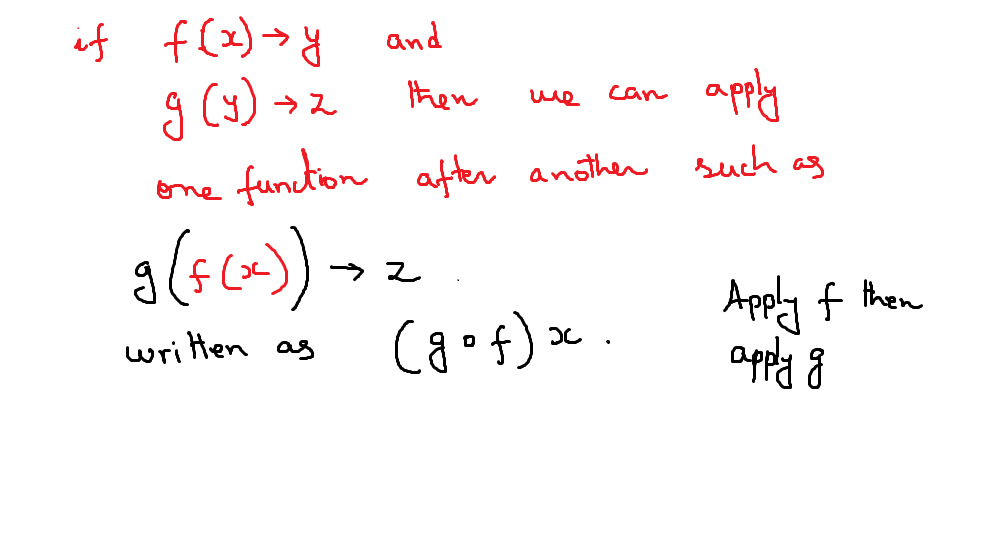 if f(x) → y and
g(y) → z then we can apply
one function after another such as
g(f(x)) → z
written as (g ∘ f) x .
Apply f then
apply g